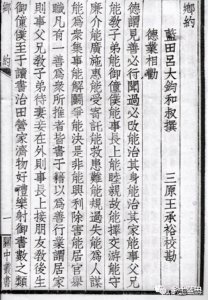 鄉約
藍田呂大鈞和叔撰　三原王承裕校勘
德業相勸
德謂見善必行聞過必改能治其身能治其家能事父兄
能教子弟能御僮僕能事長上能睦親故能擇交游能守
廉介能廣施惠能受寄託能救患難能規過失能為人謀
能為眾集事能解鬬爭能決是非能興利除害能居官舉
職凡有一善為眾所推者皆書于籍以為善行業謂居家
則事父兄教子弟待妻妾在外則事長上接朋友教後生
御僮僕至于讀書治田營家濟物好禮樂射御書數之類
鄉約　一　關中叢書